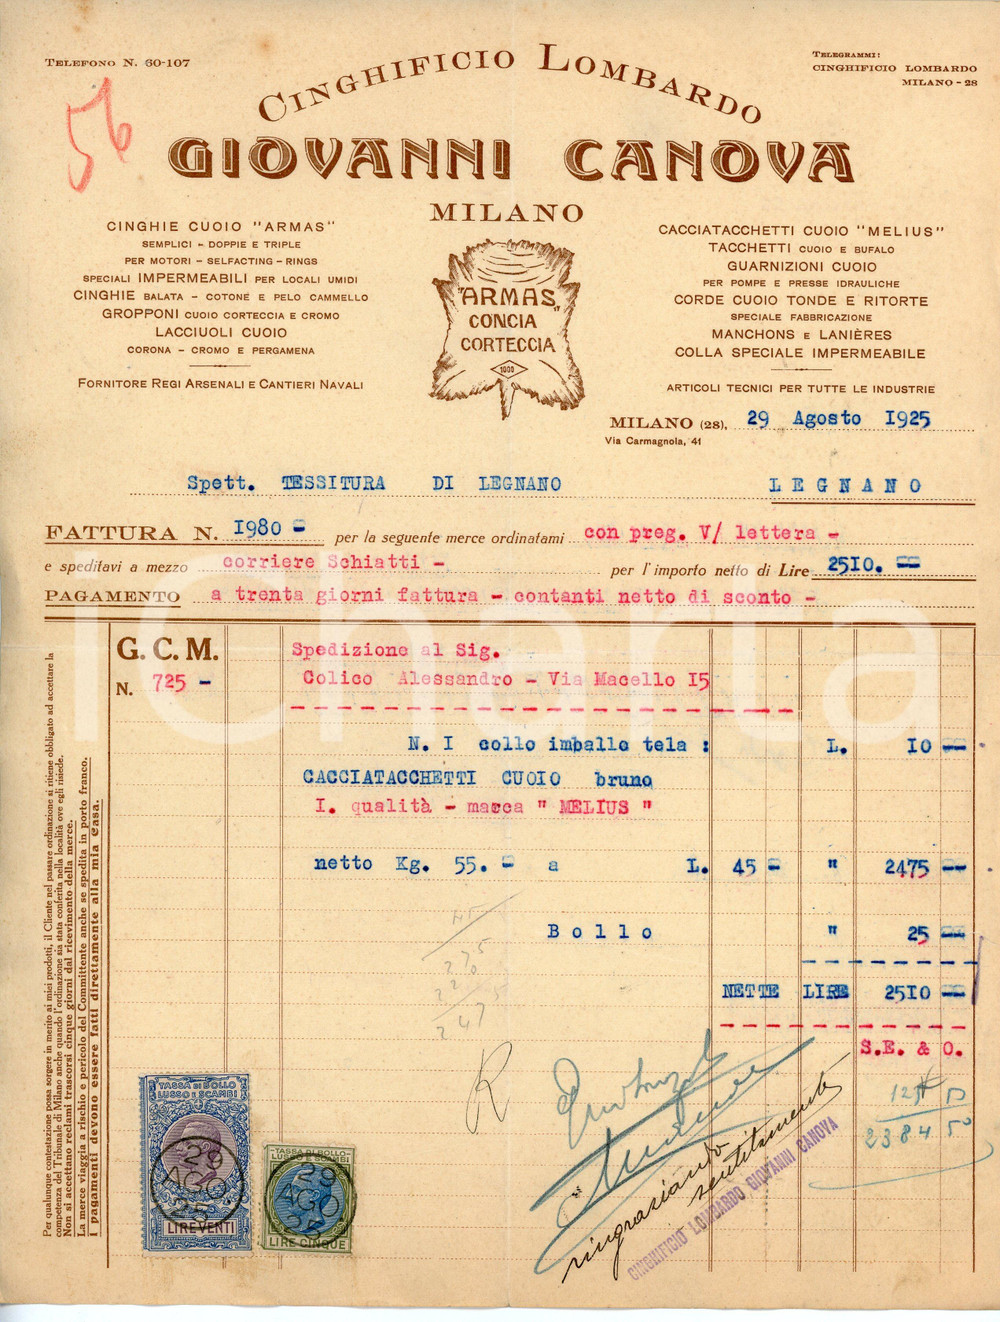 TELEFONO N. 60-107
TELEGRAMMI:
CINGHIFICIO LOMBARDO
MILANO - 28
56
CINGHIFICIO LOMBARDO
GIOVANNI CANOVA
MILANO
CINGHIE CUOIO "ARMAS"
SEMPLICI - DOPPIE E TRIPLE
PER MOTORI - SELFACTING - RINGS
SPECIALI IMPERMEABILI PER LOCALI UMIDI
CINGHIE BALATA - COTONE E PELO CAMMELLO
GROPPONI CUOIO CORTECCIA E CROMO
LACCIUOLI CUOIO
CORONA - CROMO E PERGAMENA
FORNITORE REGI ARSENALI E CANTIERI NAVALI
"ARMAS"
CONCIA
CORTECCIA
1000
CACCIATACCHETTI CUOIO "MELIUS"
TACCHETTI CUOIO E BUFALO
GUARNIZIONI CUOIO
PER POMPE E PRESSE IDRAULICHE
CORDE CUOIO TONDE E RITORTE
SPECIALE FABBRICAZIONE
MANCHONS E LANIÈRES
COLLA SPECIALE IMPERMEABILE
ARTICOLI TECNICI PER TUTTE LE INDUSTRIE
MILANO (28), 29 Agosto I925
Via Carmagnola, 41
Spett. TESSITURA DI LEGNANO LEGNANO
FATTURA N. I980 - per la seguente merce ordinatami con preg. V/ lettera -
e speditavi a mezzo corriere Schiatti - per l'importo netto di Lire 25I0. --
PAGAMENTO a trenta giorni fattura - contanti netto di sconto -
G. C. M.
N. 725 -
Spedizione al Sig.
Colico Alessandro - Via Macello I5
N. I collo imballo tela : L. I0 --
CACCIATACCHETTI CUOIO bruno
I. qualità - marca " MELIUS "
netto Kg. 55. - a L. 45 - " 2475 --
Bollo " 25 --
NETTE LIRE 25I0 --
S.E. & O.
45
275
220
2475
R
125 50
2384 50
ringraziando
sentitamente
CINGHIFICIO LOMBARDO GIOVANNI CANOVA
TASSA DI BOLLO
LUSSO E SCAMBI
29
AGO
25
LIRE VENTI
TASSA DI BOLLO
LUSSO E SCAMBI
29
AGO
25
LIRE CINQUE
Per qualunque contestazione possa sorgere in merito ai miei prodotti, il Cliente nel passare ordinazione si ritiene obbligato ad accettare la
competenza del Tribunale di Milano anche quando l'ordinazione sia stata conferita nella località ove egli risiede.
Non si accettano reclami trascorsi cinque giorni dal ricevimento della merce.
La merce viaggia a rischio e pericolo del Committente anche se spedita in porto franco.
I pagamenti devono essere fatti direttamente alla mia Casa.
iCharta